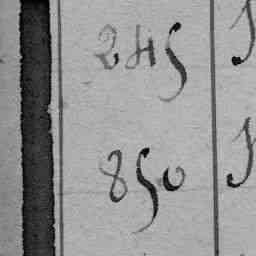 245
850